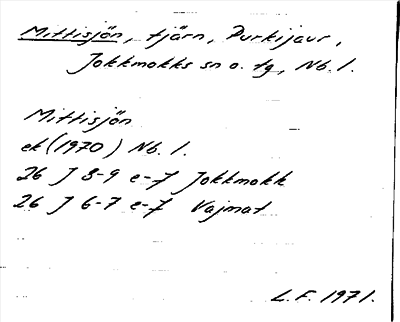 Mittisjön, tjärn, Purkijaur,
Jokkmokks sn o. tg, Nb. l.
Mittisjön
ek (1970) Nb. l.
26 J 8-9 e-f Jokkmokk
26 J 6-7 e-f Vajmat
L.F. 1971.